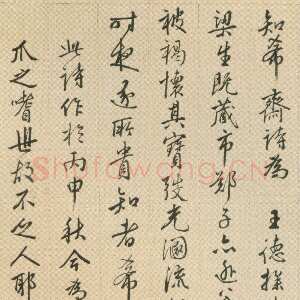 知希齋詩為王德操
梁生既藏市鄭子亦逃
被褐懷其寶發光溷流
時棄逐所貴知者希
此詩作於丙申秋今為
爪之嗜世故不乏人耶
Shufawang.CN